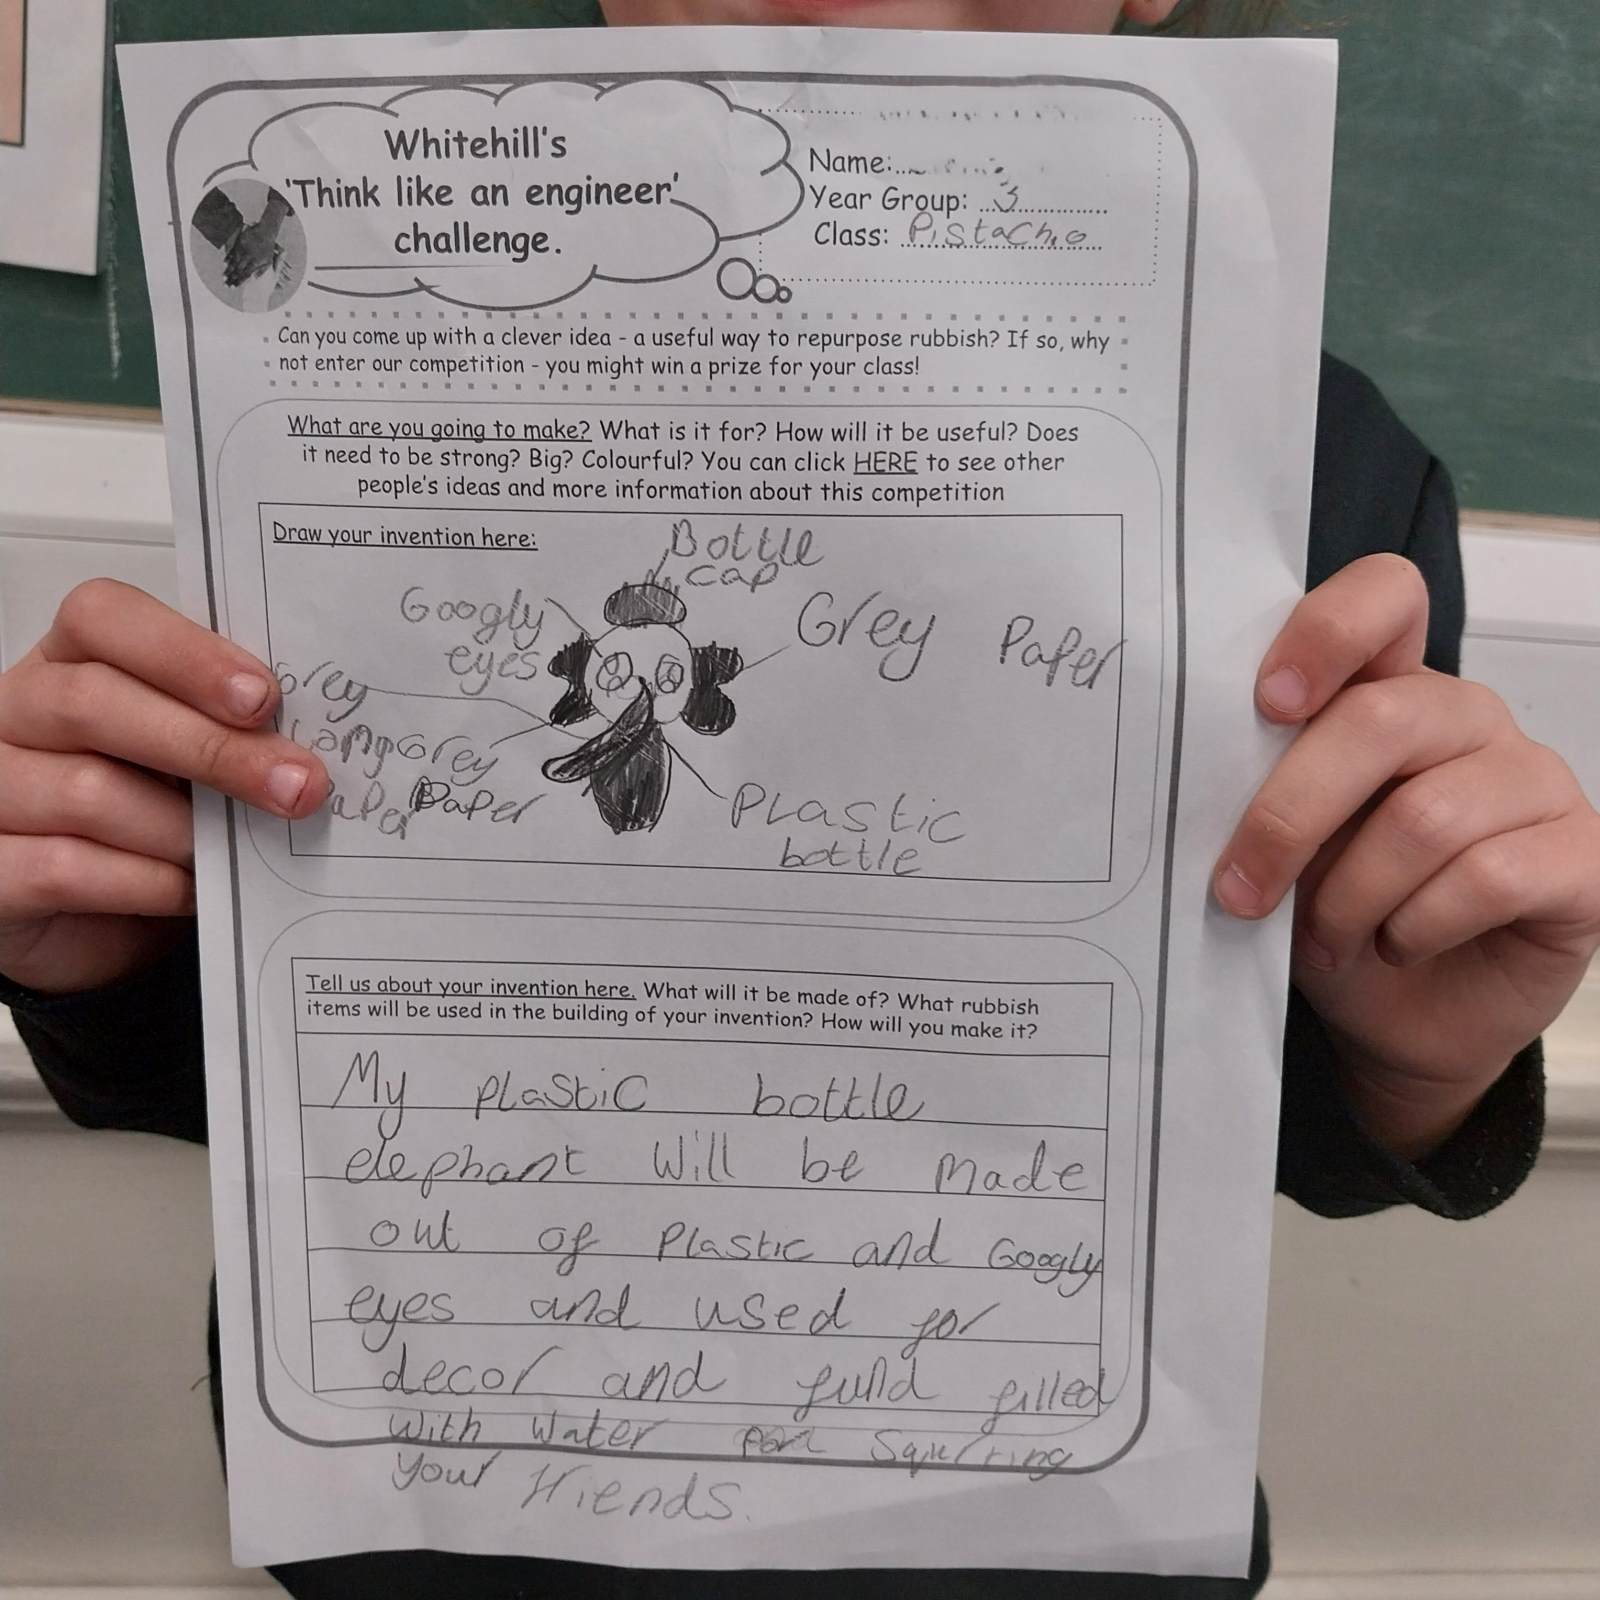 Whitehill's
'Think like an engineer'
challenge.
Name:
Year Group: 3
Class: Pistachio
Can you come up with a clever idea - a useful way to repurpose rubbish? If so, why
not enter our competition - you might win a prize for your class!
What are you going to make? What is it for? How will it be useful? Does
it need to be strong? Big? Colourful? You can click HERE to see other
people's ideas and more information about this competition
Draw your invention here:
Bottle
cap
Googly
eyes
Grey Paper
Grey
Long
Paper
Grey
Paper
Plastic
bottle
Tell us about your invention here. What will it be made of? What rubbish
items will be used in the building of your invention? How will you make it?
My plastic bottle
elephant will be made
out of plastic and Googly
eyes and used for
decor and fund filled
with water squirting
your friends.